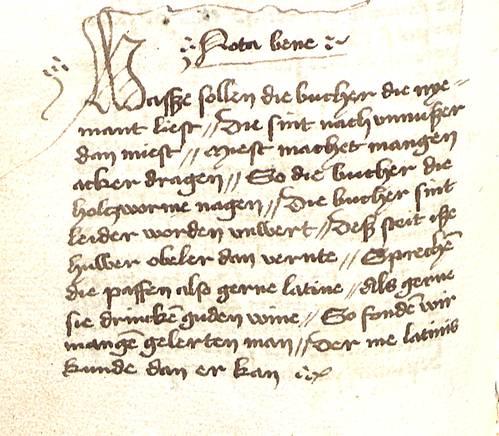 Nota bene
Wasze sollen die bucher die nye=
mant liest // Die sint nach vnnutzer
dan miest // Miest machet mangen
acker dragen // So die bucher die
holtzworme nagen // Die bucher sint
leider worden vnwert // Desz steit isze
huwer obeler dan vernte // Sprechē
die paffen also gerne latine // Als gerne
sie drinckē guden wine // So fondē wir
mangē gelerten man // Der me latinis
kunde dan er kan